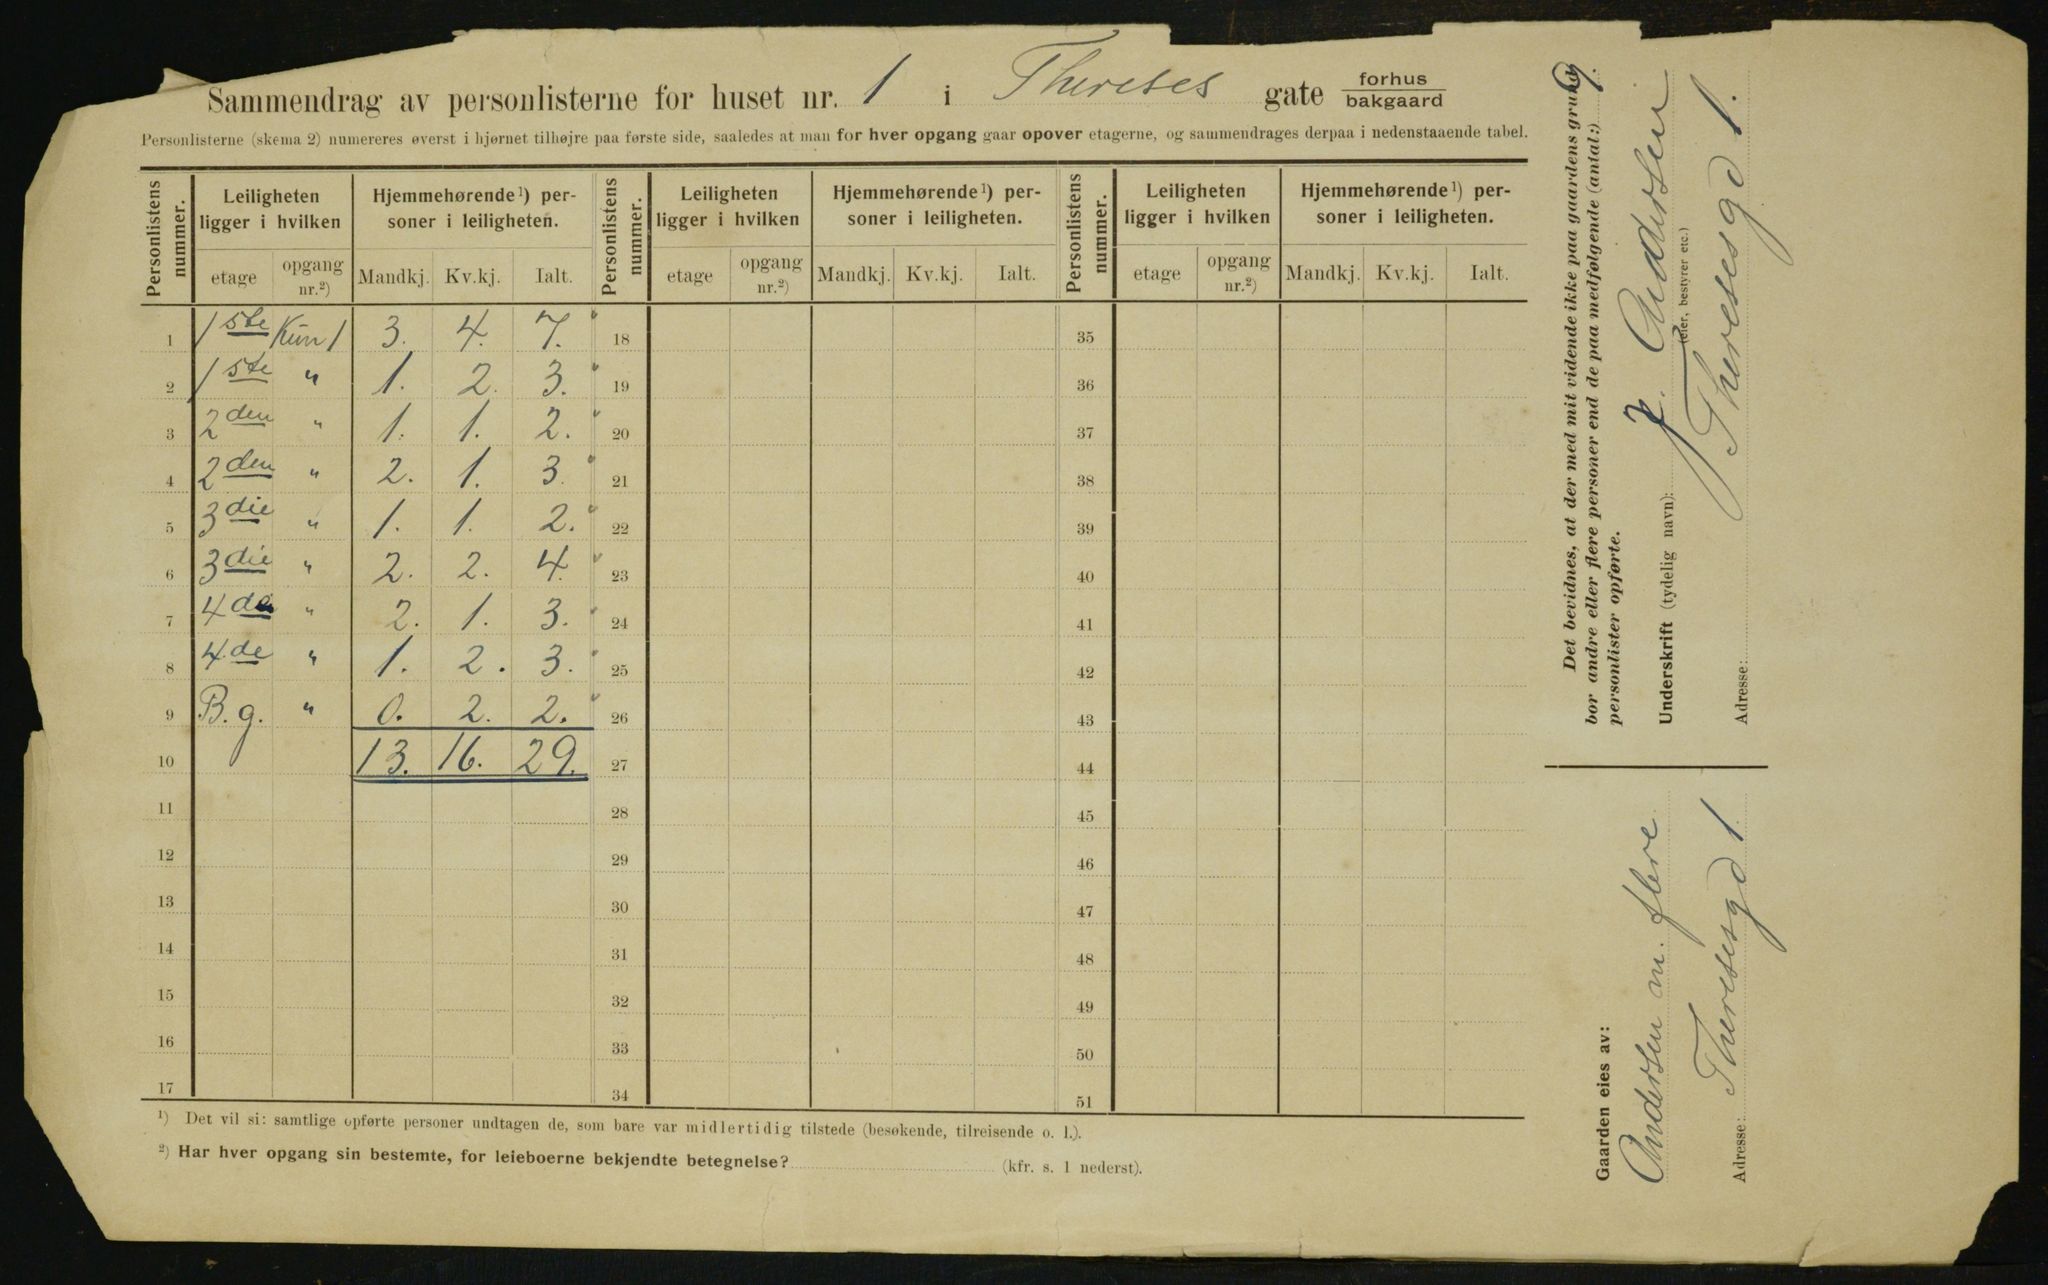 Sammendrag av personlisterne for huset nr. 1 i Thereses gate forhus bakgaard
Personlisterne (skema 2) numereres øverst i hjørnet tilhøjre paa første side, saaledes at man for hver opgang gaar opover etagerne, og sammendrages derpaa i nedenstaaende tabel.
Personlistens nummer. Leiligheten ligger i hvilken Hjemmehørende¹) personer i leiligheten. Personlistens nummer. Leiligheten ligger i hvilken Hjemmehørende¹) personer i leiligheten. Personlistens nummer. Leiligheten ligger i hvilken Hjemmehørende¹) personer i leiligheten.
etage opgang nr.²) Mandkj. Kv.kj. Ialt. etage opgang nr.²) Mandkj. Kv.kj. Ialt. etage opgang nr.²) Mandkj. Kv.kj. Ialt.
1 1ste Kun 1 3. 4. 7. 18 35
2 1ste " 1. 2. 3. 19 36
3 2den " 1. 1. 2. 20 37
4 2den " 2. 1. 3. 21 38
5 3die " 1. 1. 2. 22 39
6 3die " 2. 2. 4. 23 40
7 4de " 2. 1. 3. 24 41
8 4.de " 1. 2. 3. 25 42
9 B.g. " 0. 2. 2. 26 43
10 13. 16. 29. 27 44
11 28 45
12 29 46
13 30 47
14 31 48
15 32 49
16 33 50
17 34 51
¹) Det vil si: samtlige opførte personer undtagen de, som bare var midlertidig tilstede (besøkende, tilreisende o. l.).
²) Har hver opgang sin bestemte, for leieboerne bekjendte betegnelse? (kfr. s. 1 nederst).
Det bevidnes, at der med mit vidende ikke paa gaardens grund
bor andre eller flere personer end de paa medfølgende (antal:) 9.
personlister opførte.
Underskrift (tydelig navn): J. Andersen
(eier, bestyrer etc.)
Adresse: Theresesgd 1.
Gaarden eies av:
Andersen m. flere
Adresse: Theresesgd 1.